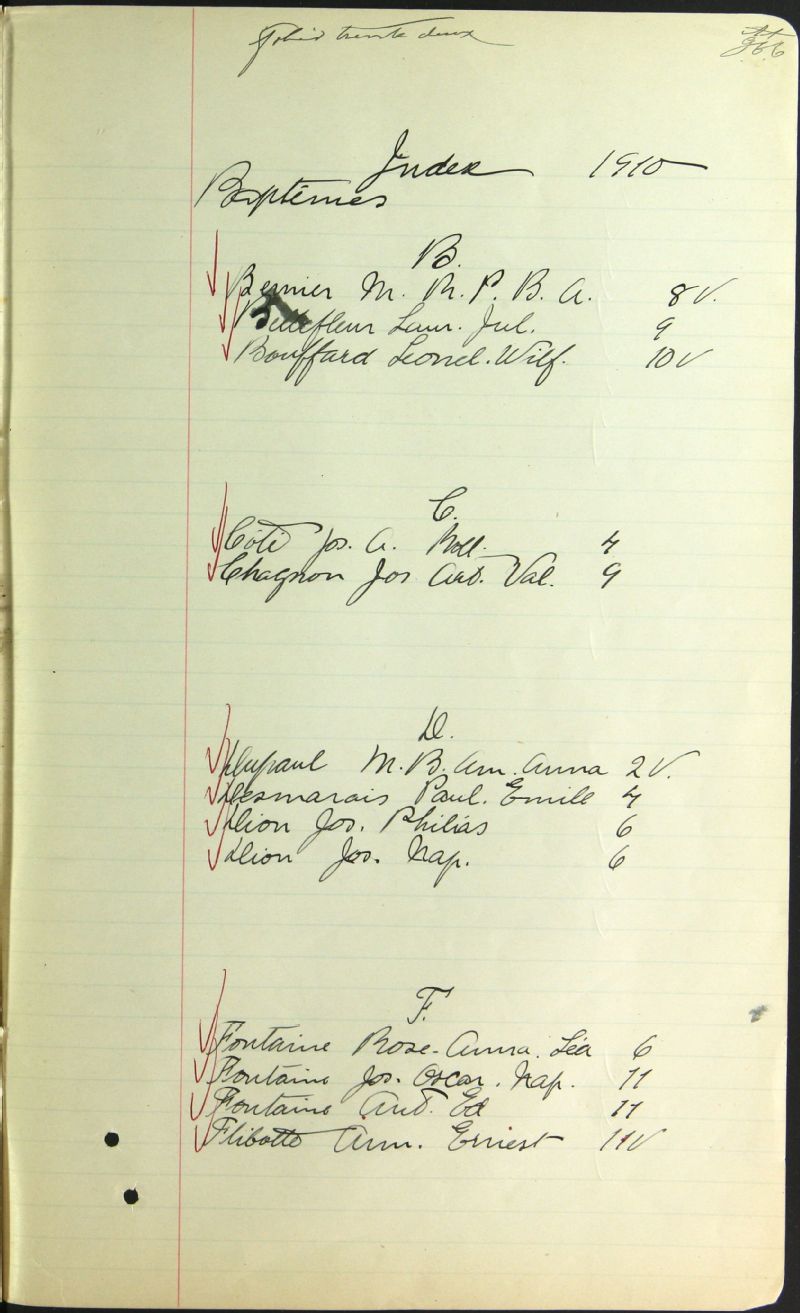 folio trente deux
Index 1910
Baptêmes
B.
Bernier M. R. P. B. A. 8 V.
Bellefleur Laur. Jul. 9
Bouffard Leonel. Wilf. 10 V
C.
Côté Jos. A. Roll. 4
Chagnon Jos Art. Val. 9
D.
Dupaul M. B. Am. Anna 2 V.
Desmarais Paul. Emile 4
Dion Jos. Philias 6
Dion Jos. Nap. 6
F.
Fontaine Rose-Anna. Léa 6
Fontaine Jos. Oscar. Nap. 11
Fontaine Ant. Ed 11
Flibotte Arm. Ernest 11 V